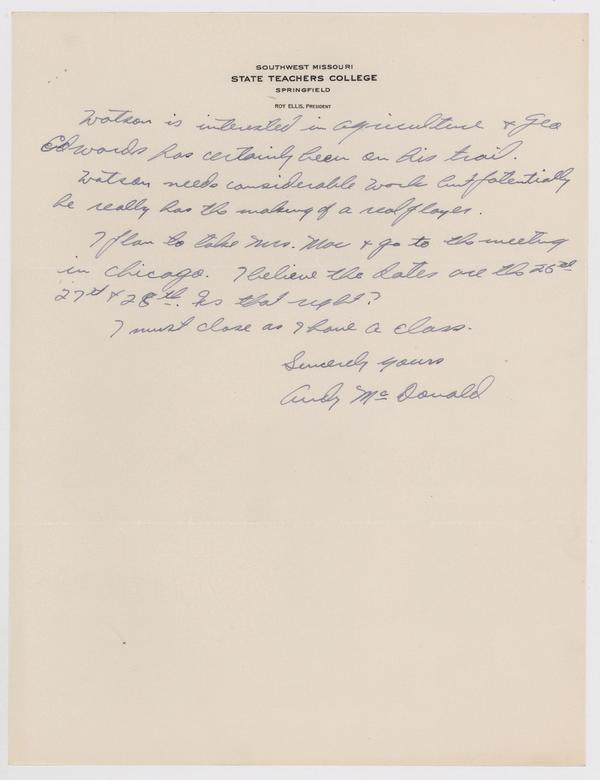 SOUTHWEST MISSOURI
STATE TEACHERS COLLEGE
SPRINGFIELD
ROY ELLIS, PRESIDENT
Watson is interested in agriculture & Geo
Edwards has certainly been on his trail.
Watson needs considerable work but potentially
he really has the making of a real player.
I plan to take Mrs. Mac & go to the meeting
in Chicago. I believe the dates are the 26th
27th & 28th. Is that right?
I must close as I have a class.
Sincerely yours
Andy McDonald